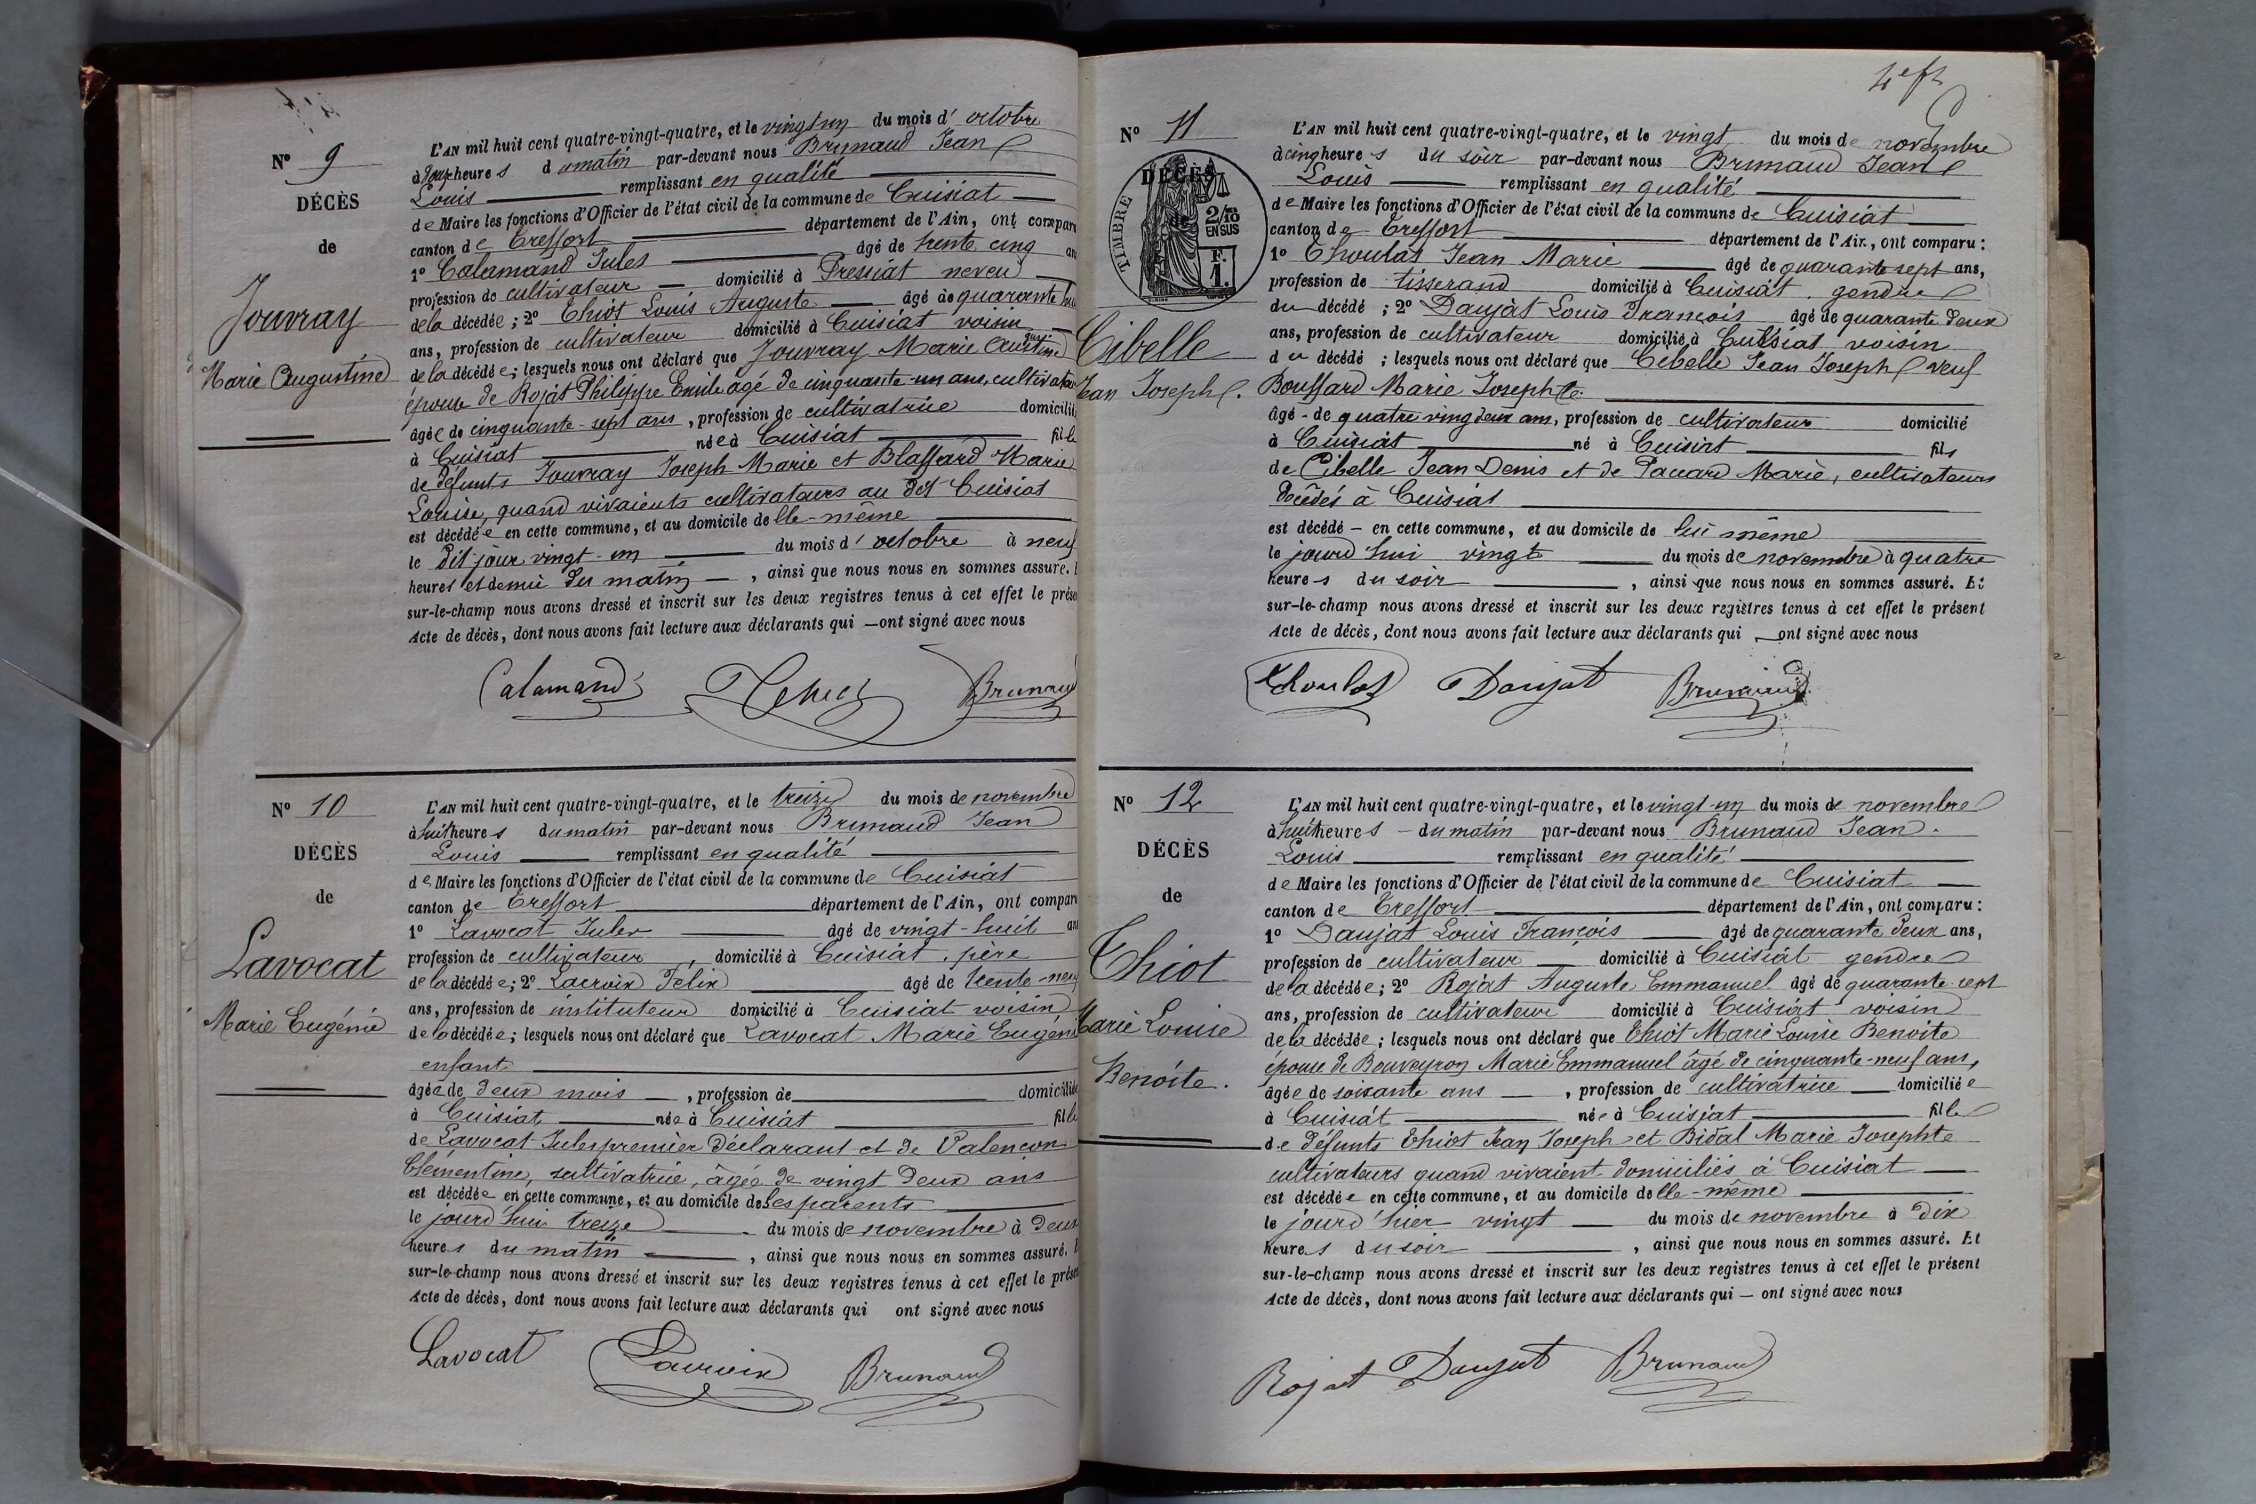 Nº 9
DÉCÈS
de
Jouvray
Marie Augustine
L'AN mil huit cent quatre-vingt-quatre, et le vingt un du mois d'octobre
heures du matin par-devant nous Brunaud Jean
Louis remplissant en qualité
de Maire les fonctions d'Officier de l'état civil de la commune de Cuisiat
canton de Treffort département de l'Ain, ont compar
1º Calamand Jules âgé de trente cinq an
profession de cultivateur domicilié à Pressiat neveu
de la décédée ; 2º Thiot Louis Auguste âgé de quarante
ans, profession de cultivateur domicilié à Cuisiat voisin
de la décédée ; lesquels nous ont déclaré que Jouvray Marie
épouse de Rojat Philippe Emile agé de cinquante-un ans, cultivateur
âgée de cinquante-sept ans, profession de cultivatrice domicilié
à Cuisiat née à Cuisiat fille
de défunts Jouvray Joseph Marie et Blaffard Marie
Louise, quand vivaients cultivateurs au dit Cuisiat
est décédée en cette commune, et au domicile delle-même
le dit jour vingt-un du mois d'octobre à neuf
heures et demie du matin, ainsi que nous nous en sommes assuré.
sur-le-champ nous avons dressé et inscrit sur les deux registres tenus à cet effet le prése
Acte de décès, dont nous avons fait lecture aux déclarants qui —ont signé avec nous
Calamand Brunaud
Nº 10
DÉCÈS
de
Lavocat
Marie Eugénie
L'AN mil huit cent quatre-vingt-quatre, et le treize du mois de novembre
à huit heures du matin par-devant nous Brunaud Jean
Louis remplissant en qualité
de Maire les fonctions d'Officier de l'état civil de la commune de Cuisiat
canton de Treffort département de l'Ain, ont compar
1º Lavocat Jules âgé de vingt-huit ans
profession de cultivateur, domicilié à Cuisiat, père
de la décédée ; 2º Lacroix Felix âgé de trente-neuf
ans, profession de instituteur domicilié à Cuisiat voisin
de la décédée ; lesquels nous ont déclaré que Lavocat Marie Eugénie
enfant
âgée de deux mois, profession de domiciliée
à Cuisiat née à Cuisiat fille
de Lavocat Jules premier déclarant et de Valençon
Clémentine, cultivatrice, âgée de vingt deux ans
est décédée en cette commune, et au domicile de ses parents
le jourd'hui treize du mois de novembre à deux
heures du matin, ainsi que nous nous en sommes assuré.
sur-le-champ nous avons dressé et inscrit sur les deux registres tenus à cet effet le prése
Acte de décès, dont nous avons fait lecture aux déclarants qui ont signé avec nous
Lavocat Lacroix Brunaud
Nº 11
DÉCÈS
TIMBRE
2/10 EN SUS
F. 1.
Cibelle
Jean Joseph.
L'AN mil huit cent quatre-vingt-quatre, et le vingt du mois de novembre
à cinq heures du soir par-devant nous Brunaud Jean
Louis remplissant en qualité
de Maire les fonctions d'Officier de l'état civil de la commune de Cuisiat
canton de Treffort département de l'Ain, ont comparu :
1º Choulat Jean Marie âgé de quarante sept ans,
profession de tisserand domicilié à Cuisiat, gendre
du décédé ; 2º Daujat Louis François âgé de quarante deux
ans, profession de cultivateur domicilié à Cuisiat voisin
du décédé ; lesquels nous ont déclaré que Cibelle Jean Joseph veuf
Bouffard Marie Josephte
âgé de quatre ving deux ans, profession de cultivateur domicilié
à Cuisiat né à Cuisiat fils
de Cibelle Jean Denis et de Pacard Marie, cultivateurs
décédés à Cuisiat
est décédé — en cette commune, et au domicile de lui même
le jourd'hui vingt du mois de novembre à quatre
heures du soir, ainsi que nous nous en sommes assuré. Et
sur-le-champ nous avons dressé et inscrit sur les deux registres tenus à cet effet le présent
Acte de décès, dont nous avons fait lecture aux déclarants qui —ont signé avec nous
Choulat Daujat Brunaud
Nº 12
DÉCÈS
de
Thiot
Marie Louise
Benoite.
L'AN mil huit cent quatre-vingt-quatre, et le vingt-un du mois de novembre
à huit heures du matin par-devant nous Brunaud Jean
Louis remplissant en qualité
de Maire les fonctions d'Officier de l'état civil de la commune de Cuisiat
canton de Treffort département de l'Ain, ont comparu :
1º Daujat Louis François âgé de quarante deux ans,
profession de cultivateur domicilié à Cuisiat gendre
de la décédée ; 2º Rojat Auguste Emmanuel âgé de quarante-sept
ans, profession de cultivateur domicilié à Cuisiat voisin
de la décédée ; lesquels nous ont déclaré que Thiot Marie Louise Benoite
épouse de Bouveyron Marie Emmanuel âgé de cinquante-neuf ans,
âgée de soisante ans, profession de cultivatrice domiciliée
à Cuisiat née à Cuisiat fille
de défunts Thiot Jean Joseph et Bidal Marie Josephte
cultivateurs quand vivaient domiciliés à Cuisiat
est décédée en cette commune, et au domicile delle-même
le jourd'hier vingt du mois de novembre à dix
heures du soir, ainsi que nous nous en sommes assuré. Et
sur-le-champ nous avons dressé et inscrit sur les deux registres tenus à cet effet le présent
Acte de décès, dont nous avons fait lecture aux déclarants qui — ont signé avec nous
Rojat Daujat Brunaud